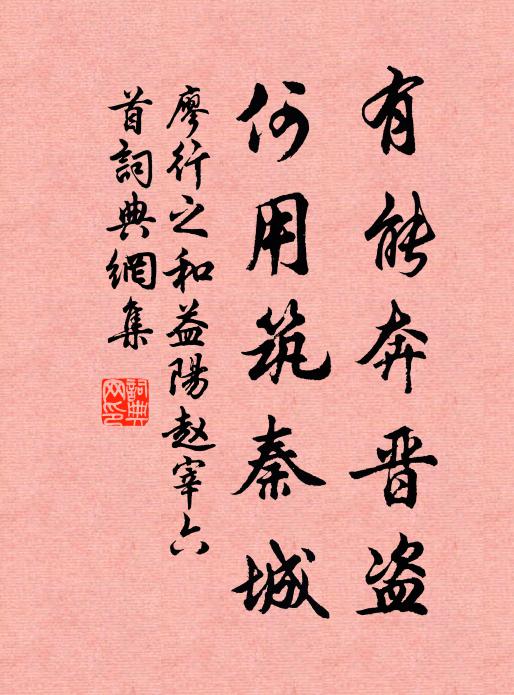 有能奔晋盗
何用筑秦城
廖行之和益陽赵宰六
首詞典網集
詞典
网印